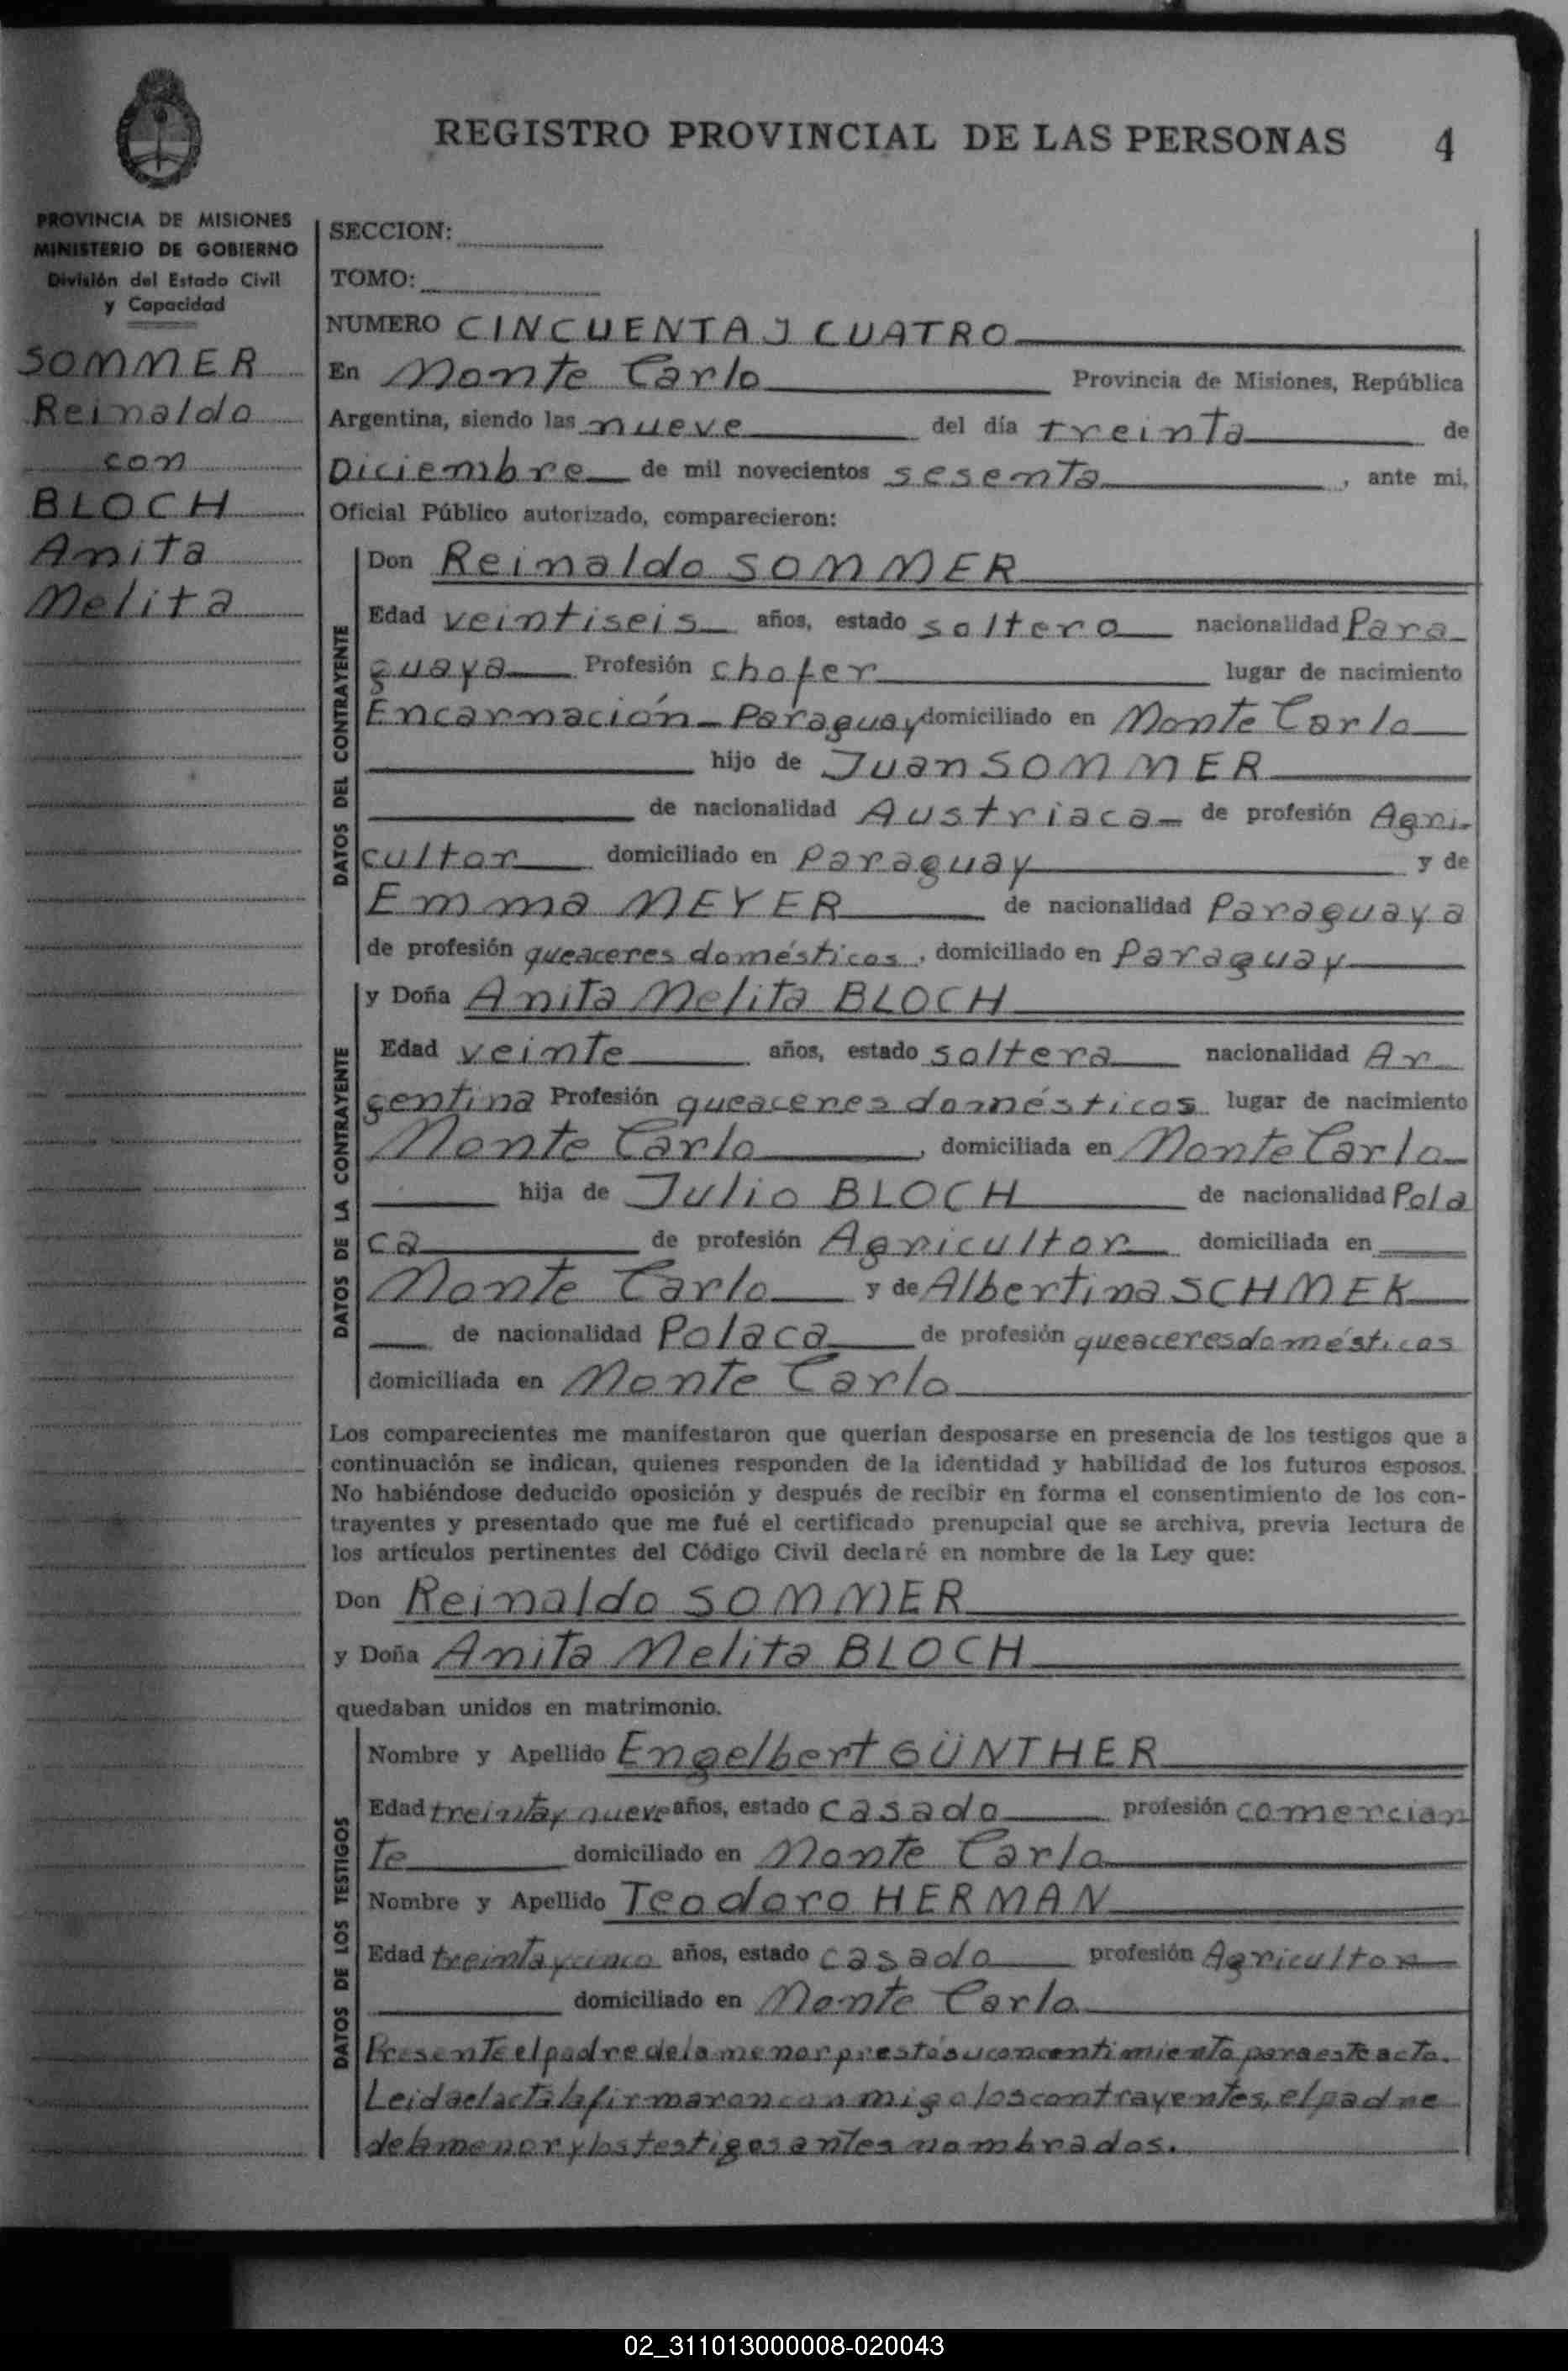 REGISTRO PROVINCIAL DE LAS PERSONAS 4
PROVINCIA DE MISIONES
MINISTERIO DE GOBIERNO
División del Estado Civil
y Capacidad
SOMMER
Reinaldo
con
BLOCH
Anita
Melita
SECCION:
TOMO:
NUMERO CINCUENTA Y CUATRO
En Monte Carlo Provincia de Misiones, República
Argentina, siendo las nueve del día treinta de
Diciembre de mil novecientos sesenta, ante mi,
Oficial Público autorizado, comparecieron:
DATOS DEL CONTRAYENTE
Don Reinaldo SOMMER
Edad veintiseis años, estado soltero nacionalidad Para
guaya Profesión chofer lugar de nacimiento
Encarnación - Paraguay domiciliado en Monte Carlo
hijo de Juan SOMMER
de nacionalidad Austriaca de profesión Agri-
cultor domiciliado en Paraguay y de
Emma MEYER de nacionalidad Paraguaya
de profesión queaceres domésticos, domiciliado en Paraguay
DATOS DE LA CONTRAYENTE
y Doña Anita Melita BLOCH
Edad veinte años, estado soltera nacionalidad Ar
gentina Profesión queaceres domésticos lugar de nacimiento
Monte Carlo, domiciliada en Monte Carlo
hija de Julio BLOCH de nacionalidad Pola
ca de profesión Agricultor domiciliada en
Monte Carlo y de Albertina SCHMEK
de nacionalidad Polaca de profesión queaceres domésticos
domiciliada en Monte Carlo
Los comparecientes me manifestaron que querían desposarse en presencia de los testigos que a
continuación se indican, quienes responden de la identidad y habilidad de los futuros esposos.
No habiéndose deducido oposición y después de recibir en forma el consentimiento de los con-
trayentes y presentado que me fué el certificado prenupcial que se archiva, previa lectura de
los artículos pertinentes del Código Civil declaré en nombre de la Ley que:
Don Reinaldo SOMMER
y Doña Anita Melita BLOCH
quedaban unidos en matrimonio.
DATOS DE LOS TESTIGOS
Nombre y Apellido Engelbert GÜNTHER
Edad treinta y nueve años, estado casado profesión comercian
te domiciliado en Monte Carlo
Nombre y Apellido Teodoro HERMAN
Edad treinta y cinco años, estado casado profesión Agricultor
domiciliado en Monte Carlo
Presente el padre de la menor prestó su concentimiento para este acto.
Leida el acta la firmaron conmigo los contrayentes, el padre
de la menor y los testigos antes nombrados.
02_311013000008-020043